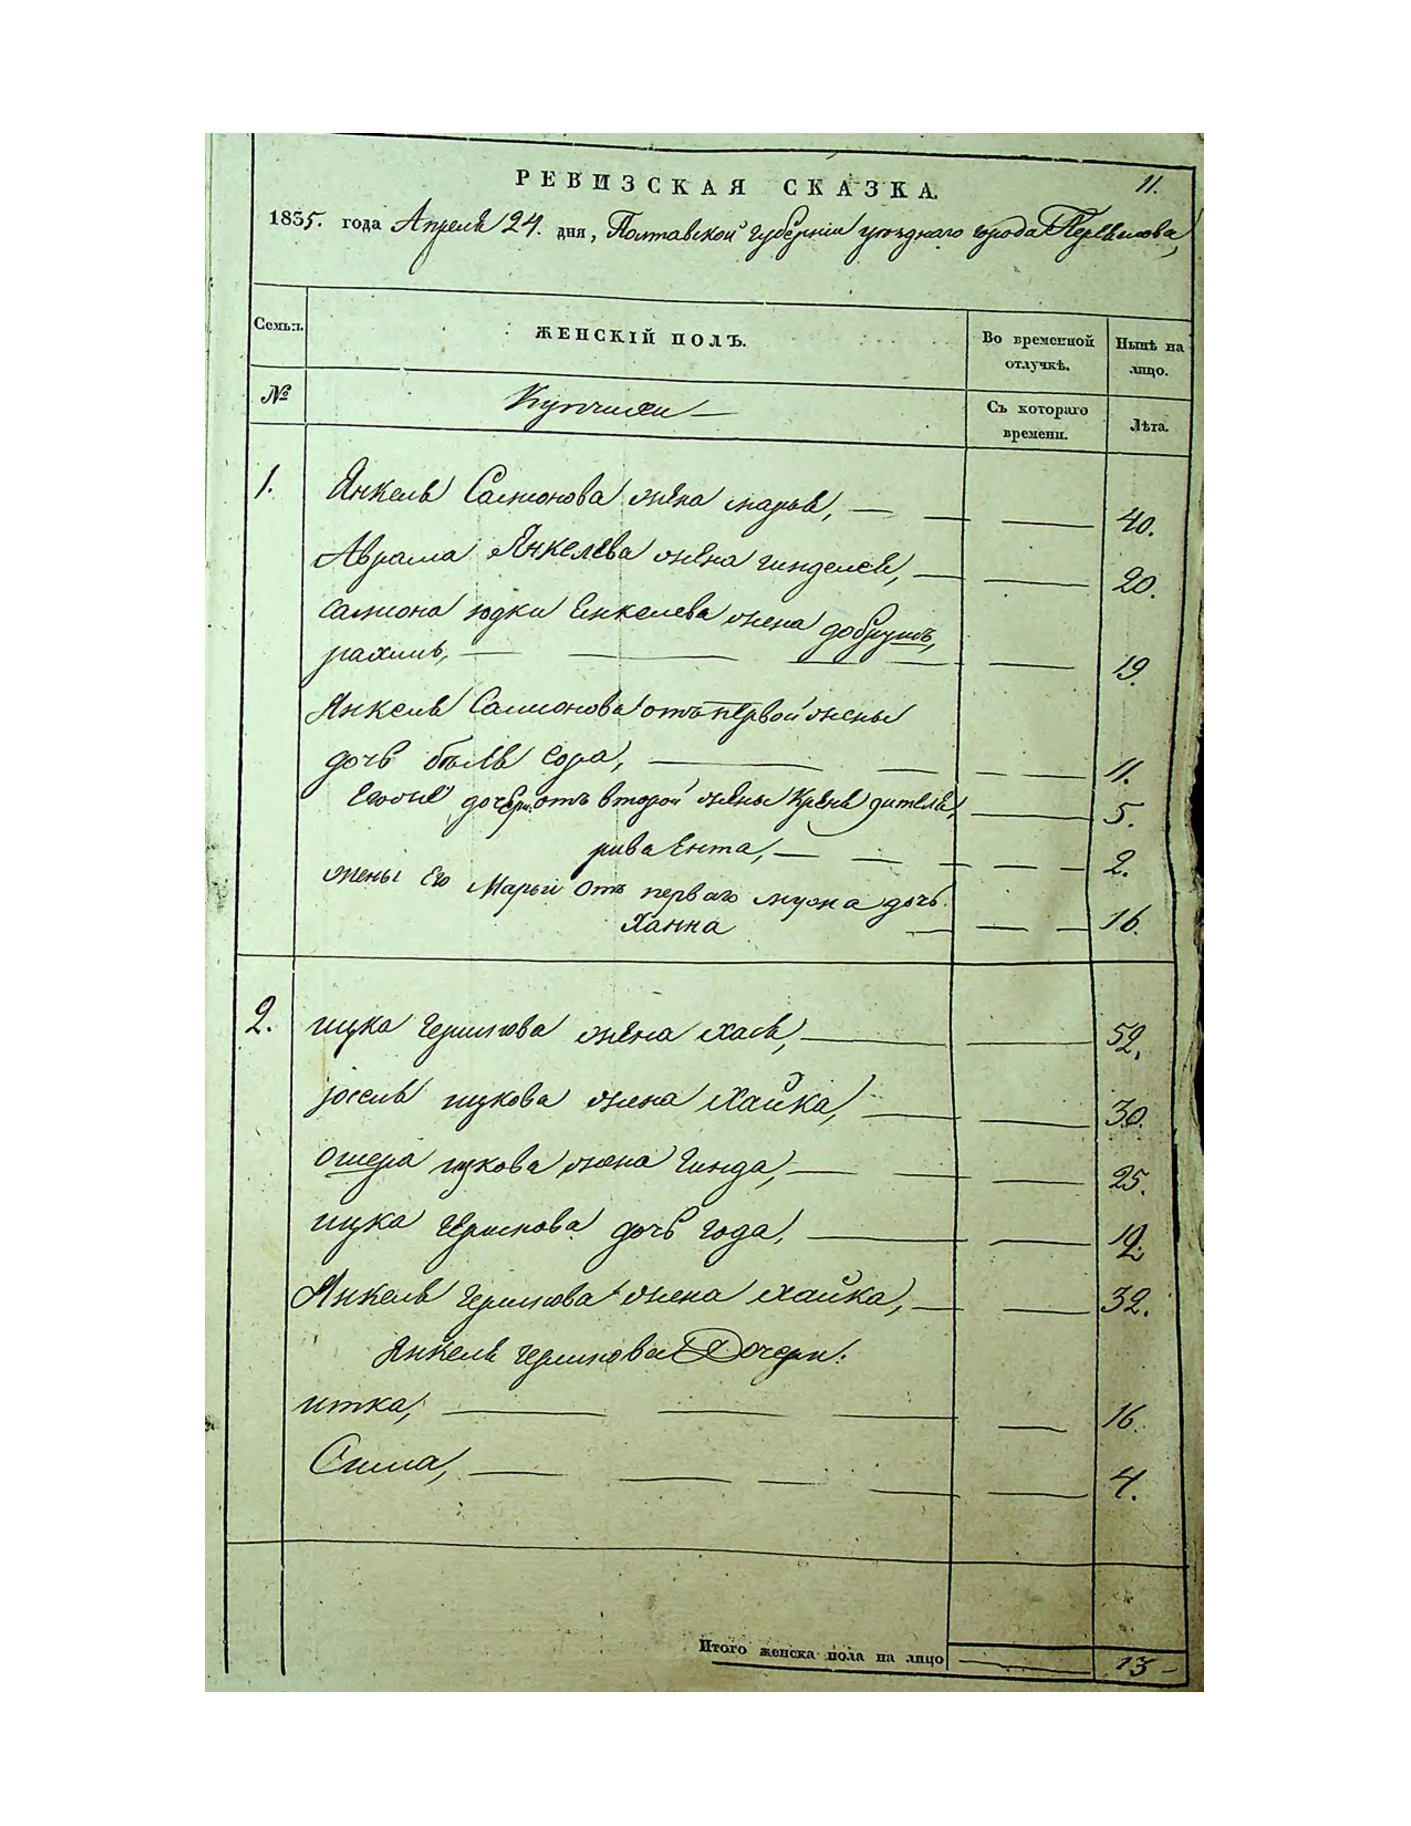 11.
РЕВИЗСКАЯ СКАЗКА.
1835. года Апреля 24. дня, Полтавской губернии уезднаго города
Семьи. ЖЕНСКІЙ ПОЛЪ. Во временной отлучкѣ. Нынѣ на лицо.
№ Купчихи — Съ котораго времени. Лѣта.
1. Янкеля Салмонова жена марья, — 40.
Аврама Янкелева жена — 20.
салмона юдки Енкелева жена
рахиль, — 19.
Янкеля Салмонова отъ первой жены
дочь Сора, — 11.
дочери отъ второй жены 5.
рива Ента, — 2.
жены Его Марьи отъ перваго мужа дочь
Ханна — 16.
2. ицка жена хася, — 52.
иоселя ицкова жена Хайка, — 30.
ошера ицкова жена Гинда, — 25.
ицка дочь года, — 12.
Янкеля жена хайка, — 32.
Янкеля Дочери:
итка, — 16.
Сима, — 4.
Итого женска пола на лицо — 13 —